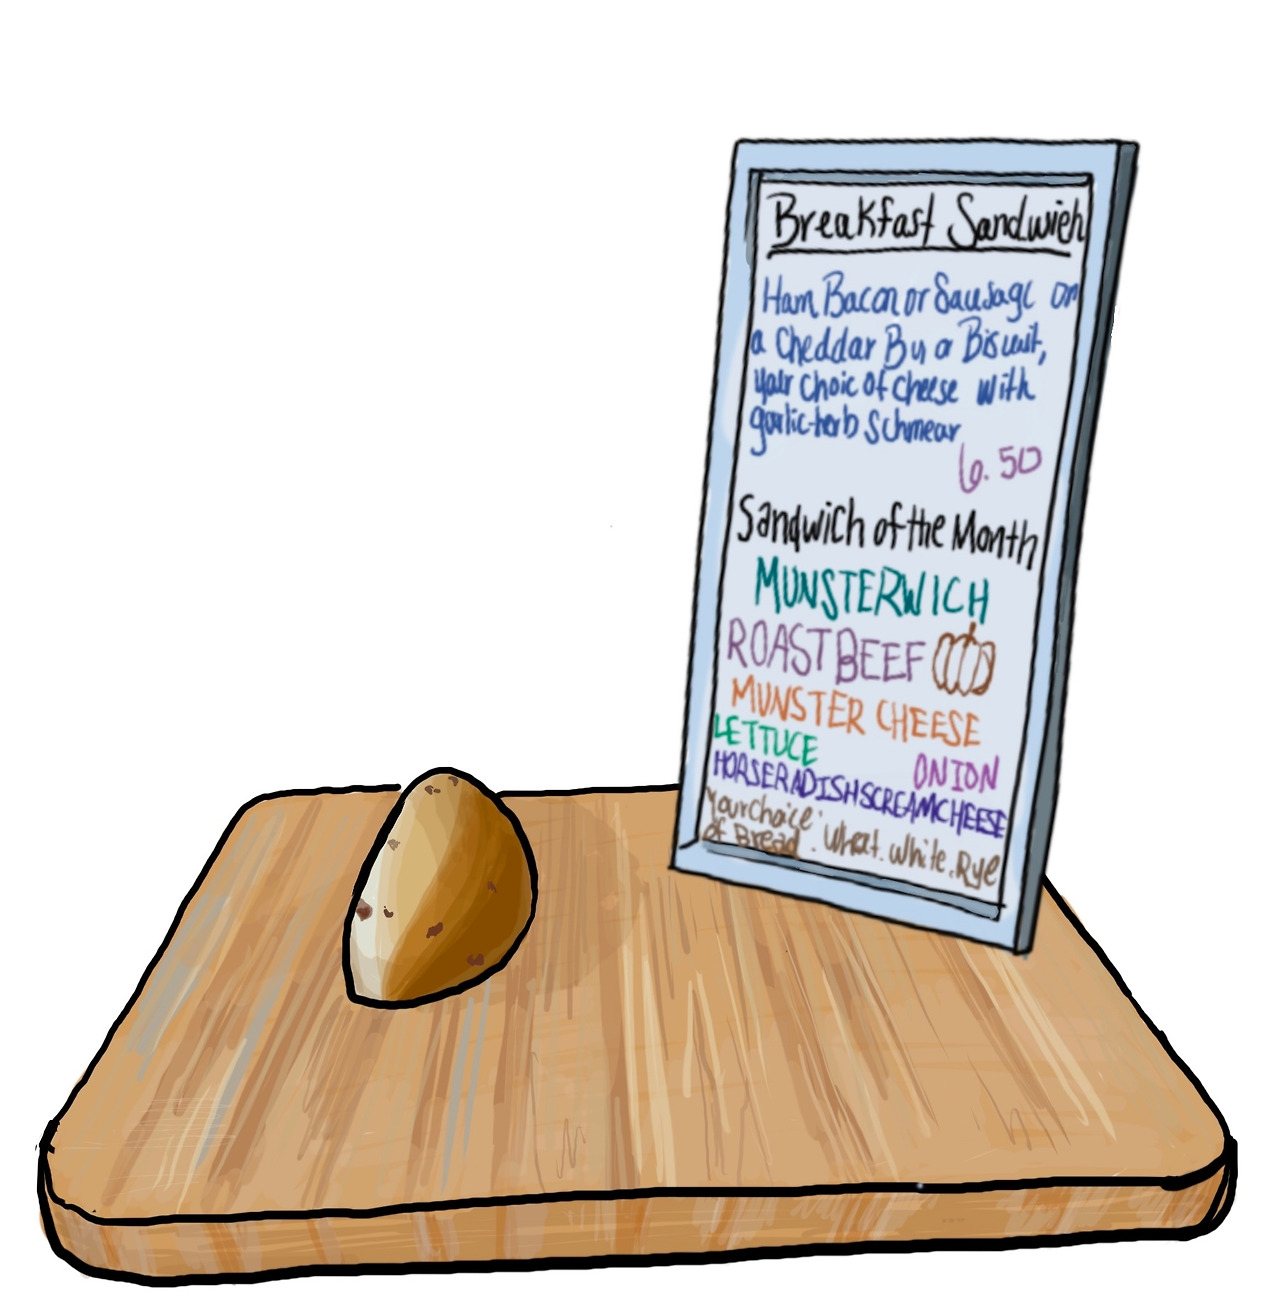 Breakfast Sandwich
Ham Bacon or Sausage on
a Cheddar Bun or Biscuit,
your choic of cheese with
garlic-herb Schmear
6.50
Sandwich of the Month
MUNSTERWICH
ROAST BEEF
MUNSTER CHEESE
LETTUCE ONION
HORSERADISHSCREAMCHEESE
Your choice: wheat. white. Rye
of Bread.